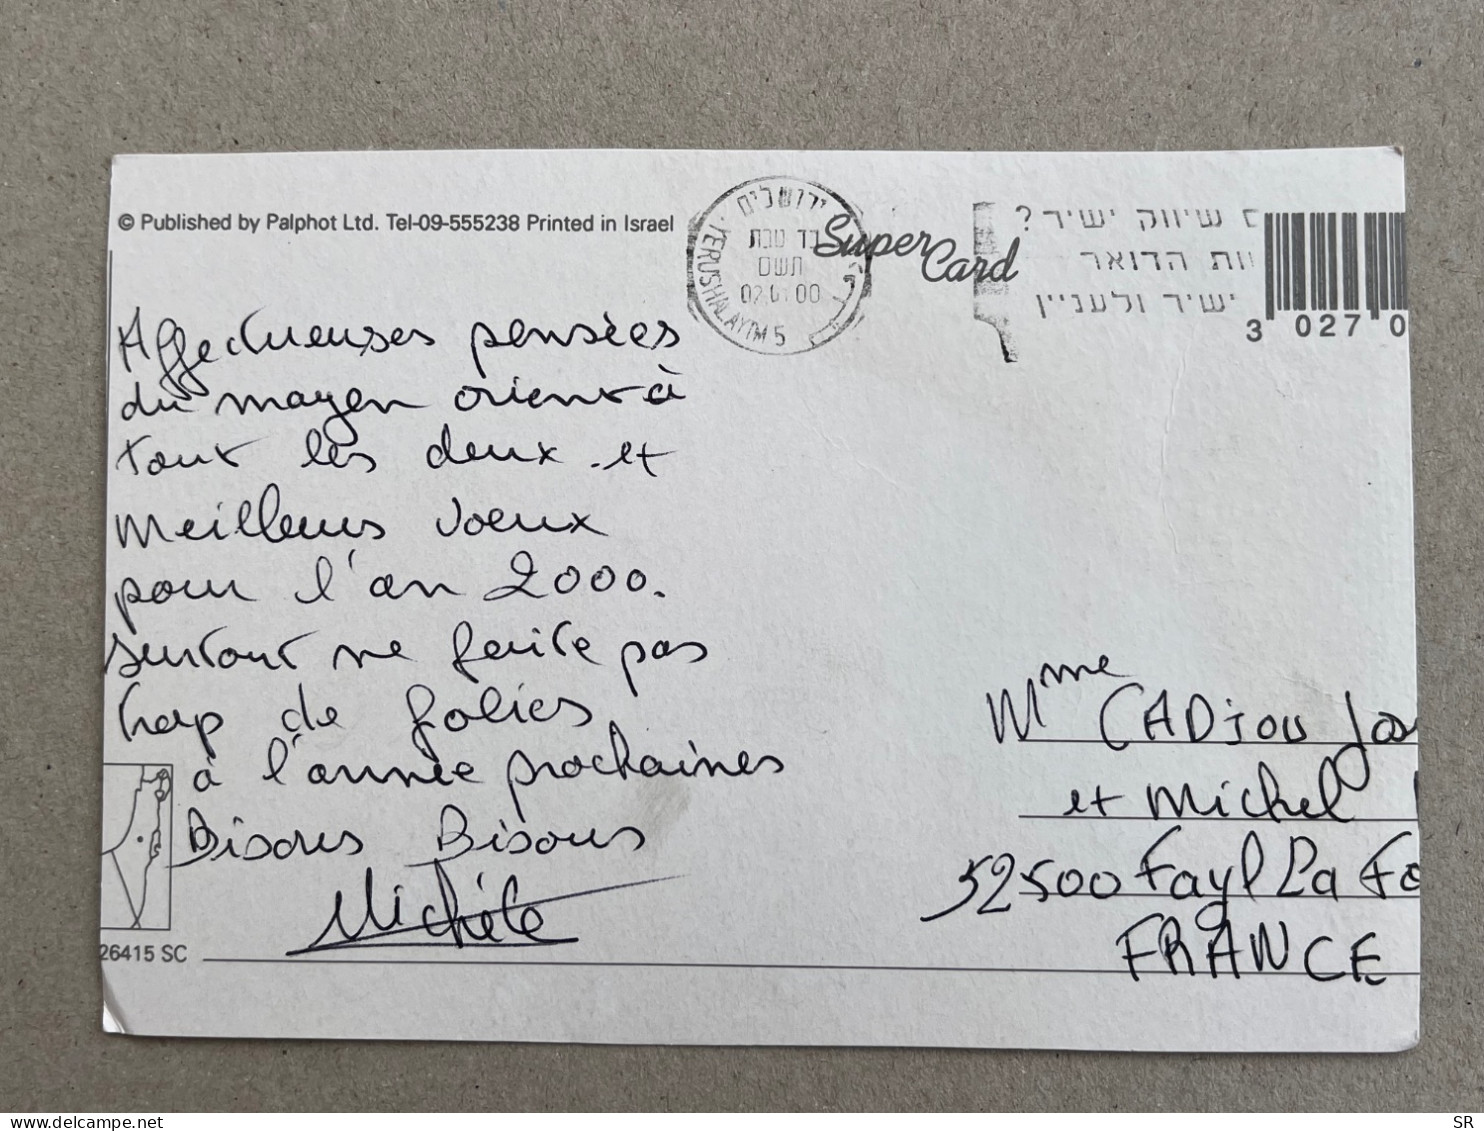 © Published by Palphot Ltd. Tel-09-555238 Printed in Israel
ירושלים
כד טבת
תשס
02.01.00
YERUSHALAYIM 5
Super Card
שיווק ישיר?
הדואר
ישיר ולעניין
3 027 0
Affectueuses pensées
du mayen orient à
tout les deux et
meilleurs voeux
pour l'an 2000.
surtout ne faite pas
trop de folies
à l'année prochaines
Bisous Bisous
Michéle
Mme CADiou
et Michel
52500 Fayl La
FRANCE
26415 SC
delcampe.net
SR